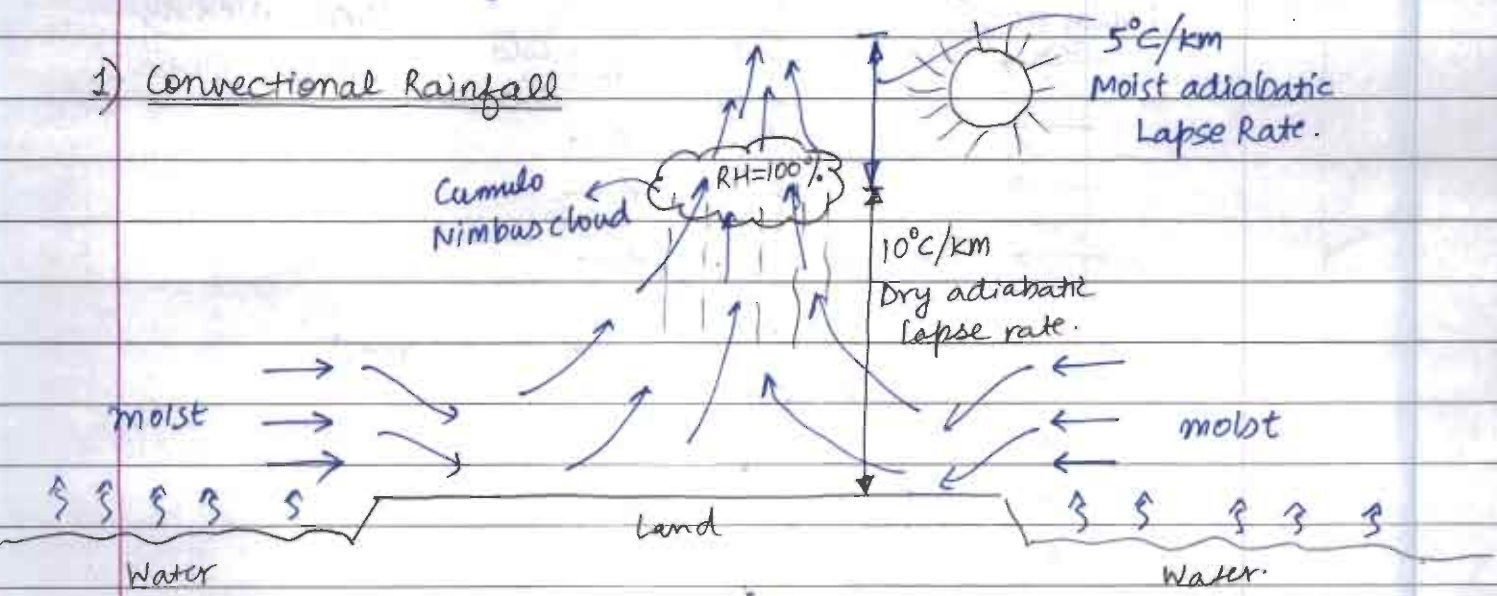 1) Convectional Rainfall
5°C/km
Moist adiabatic
Lapse Rate.
RH=100%
Cumulo
Nimbus cloud
10°C/km
Dry adiabatic
lapse rate.
moist
moist
Land
Water
Water.